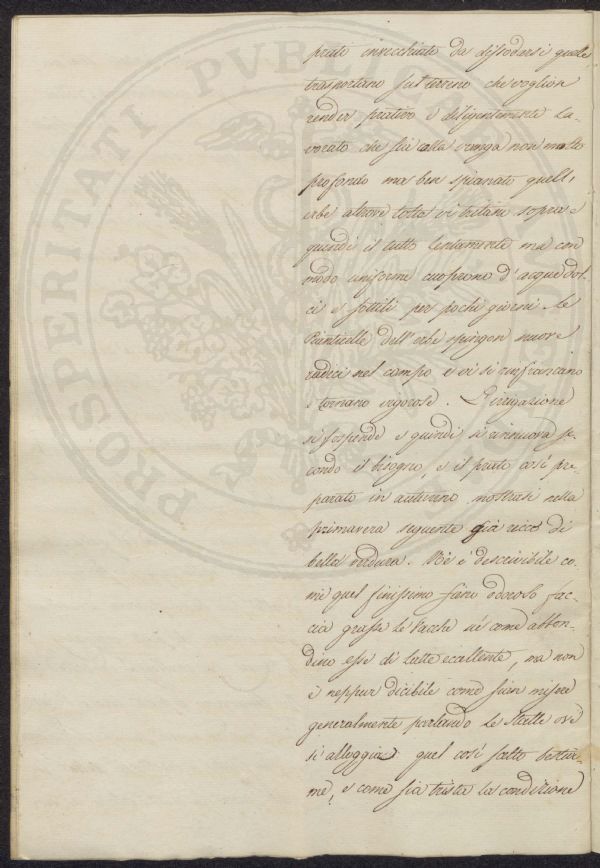 prati invecchiate da dissodarsi quelle
trasportano sul terreno che voglion
render prativo e diligentemente la-
vorato che sia colla vanga non molto
profondo ma ben spianato quell'
erbe altrove tolte vi tritano sopra e
quindi il tutto lentamente ma con
modo uniforme cuoprono d'acque dol-
ci e sottili per pochi giorni. Le
Pianticelle dell'erbe spingon nuove
radici nel campo e vi si rinfrancano
e tornano vigorose. L'irrigazione
si sospende e quindi si rinnuova se-
condo il bisogno, e il prato così pre-
parato in autunno mostrasi nella
primavera seguente già ricco di
bella verdura. Nè è descrivibile co-
me quel finissimo fieno odoroso fac-
cia grasse le Vacche nè come abbon-
dino esse di latte eccellente, ma non
è neppur dicibile come sien misere
generalmente parlando le stalle ove
si alloggia quel così fatto bestia-
me, e come sia trista la condizione
PROSPERITATI PVBLICAE